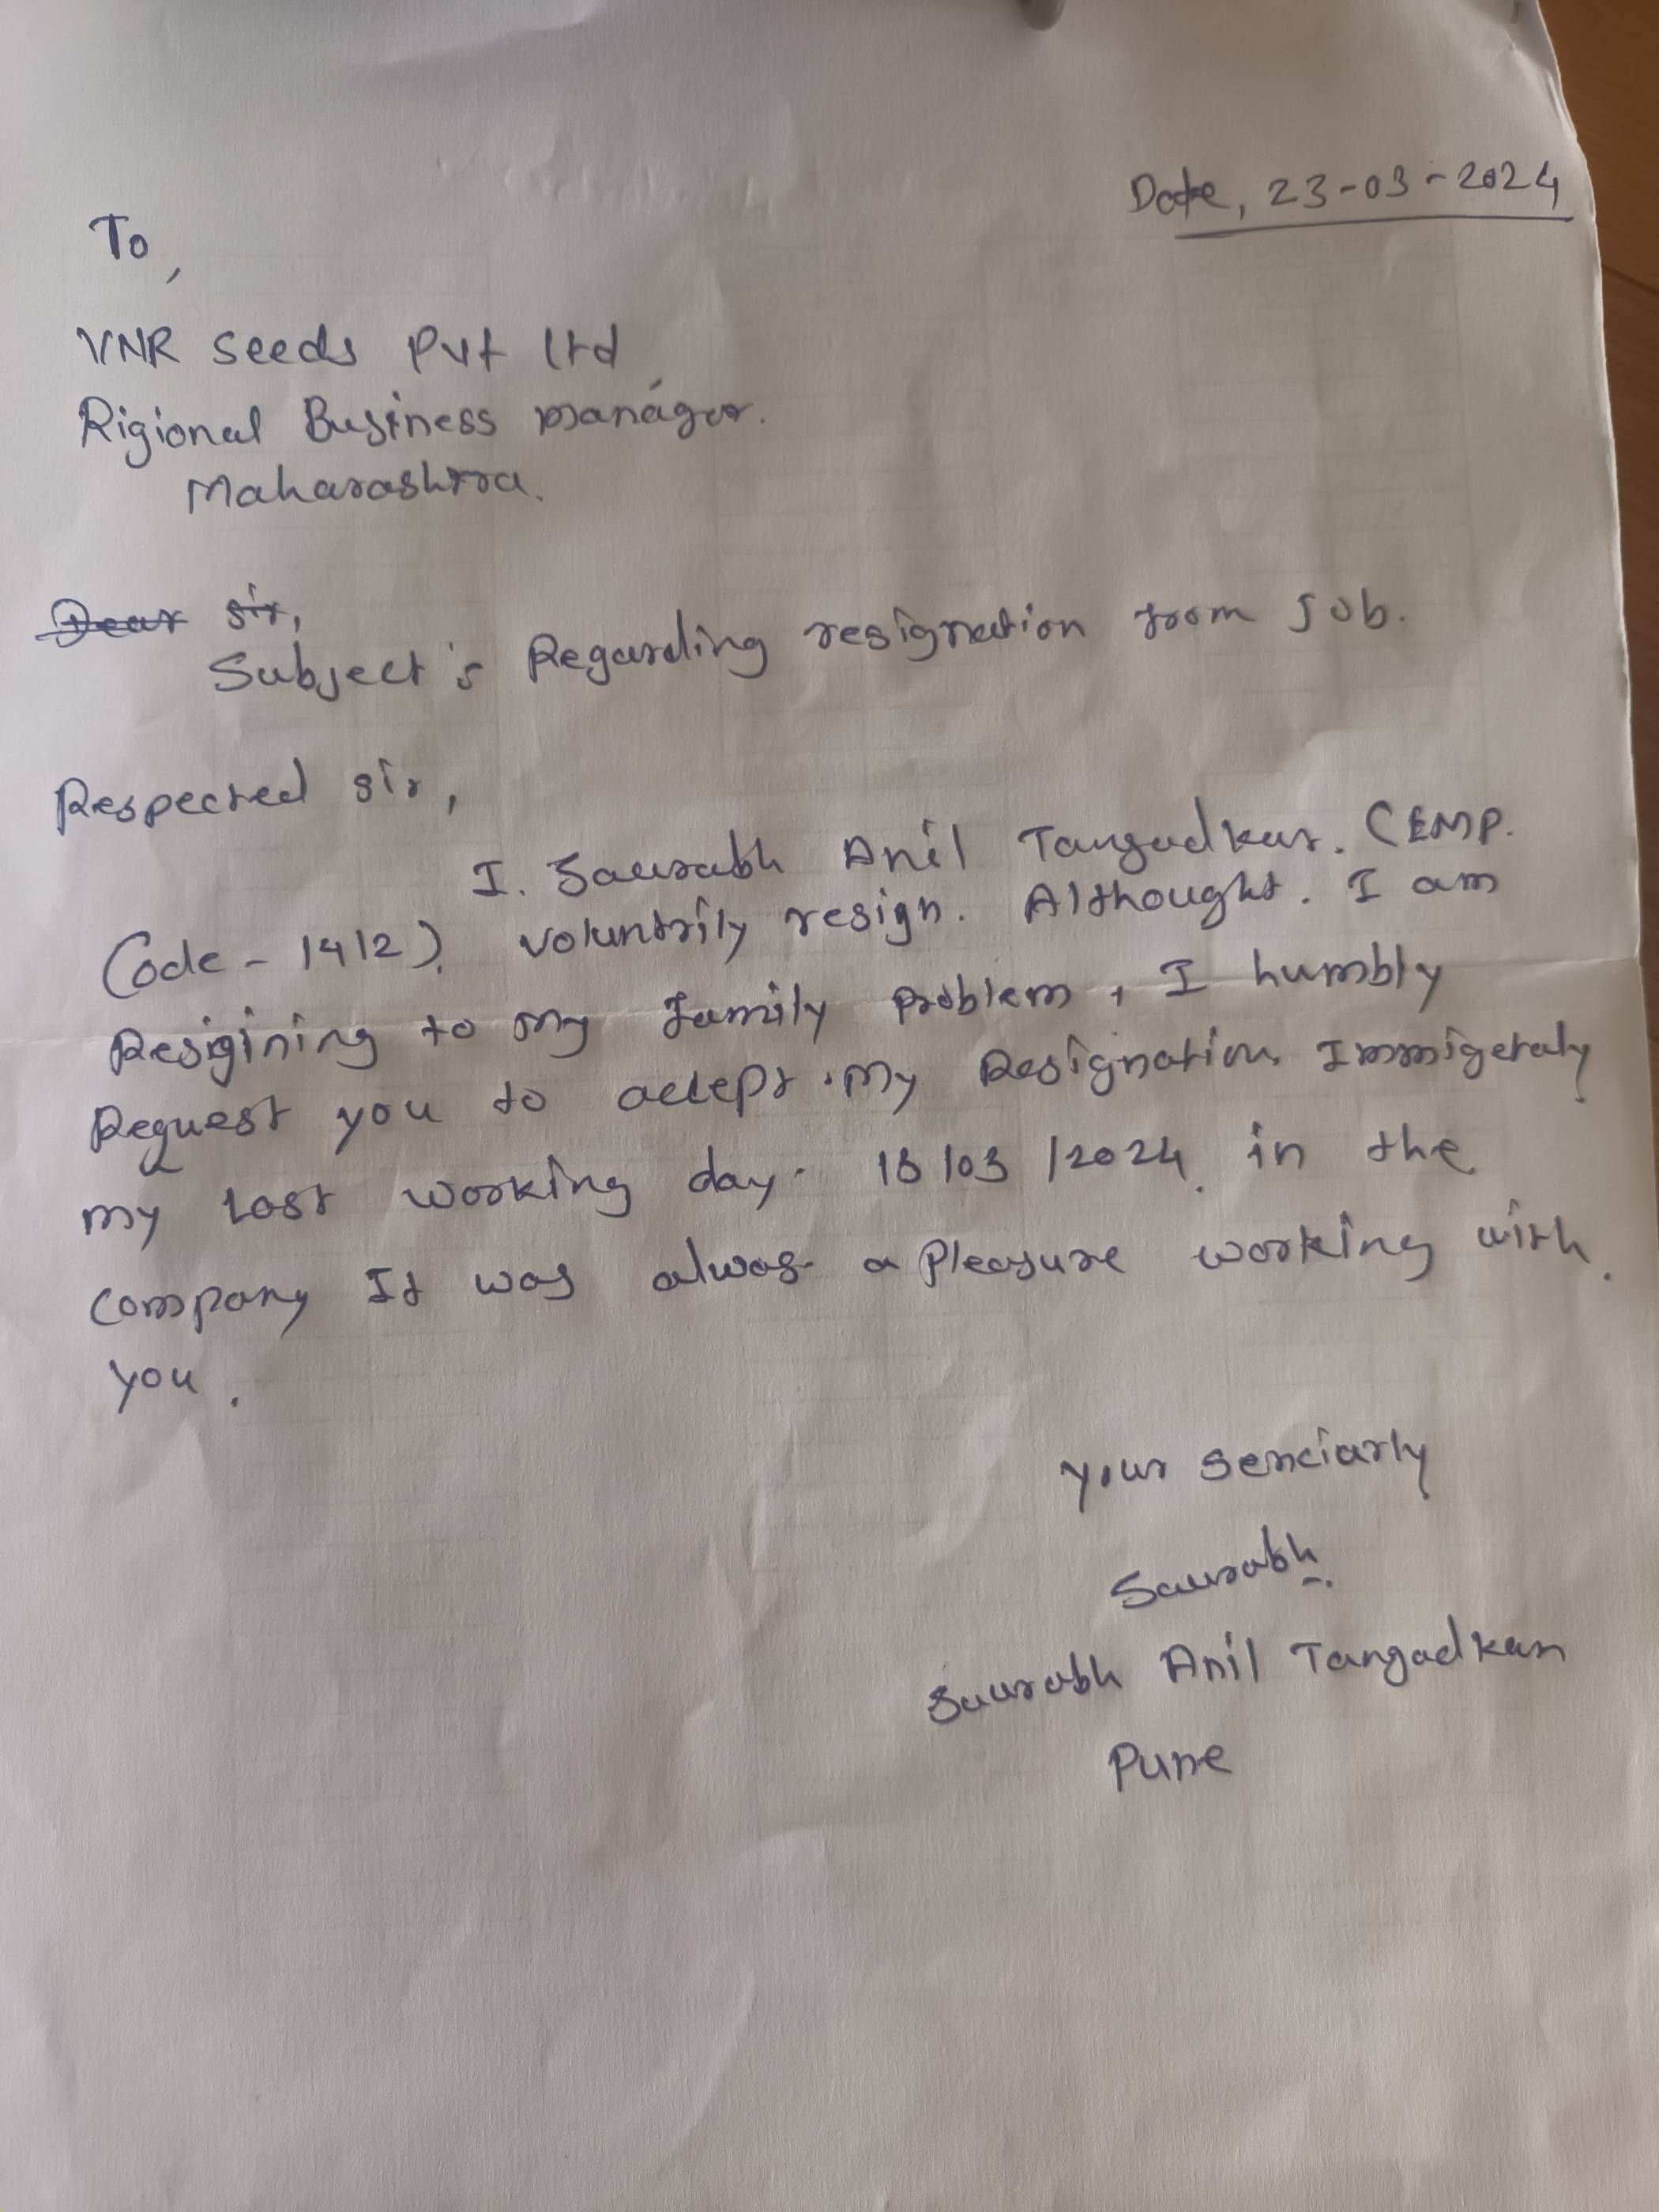 Date, 23-03-2024
To,
VNR seeds Pvt ltd
Rigional Business manager.
Maharashtra.
Dear sir,
Subject's Regarding resignation from Job.
Respected sir,
I. Saurabh Anil Tangadkar. (EMP.
Code - 1412). voluntrily resign. Althought. I am
Resigining to my family problem, I humbly
Request you to accept my Resignation Immigetaly
my last working day. 18/03/2024. in the
company It was alwas a Pleasure working with.
you.
your senciarly
Saurabh.
Saurabh Anil Tangadkar
Pune